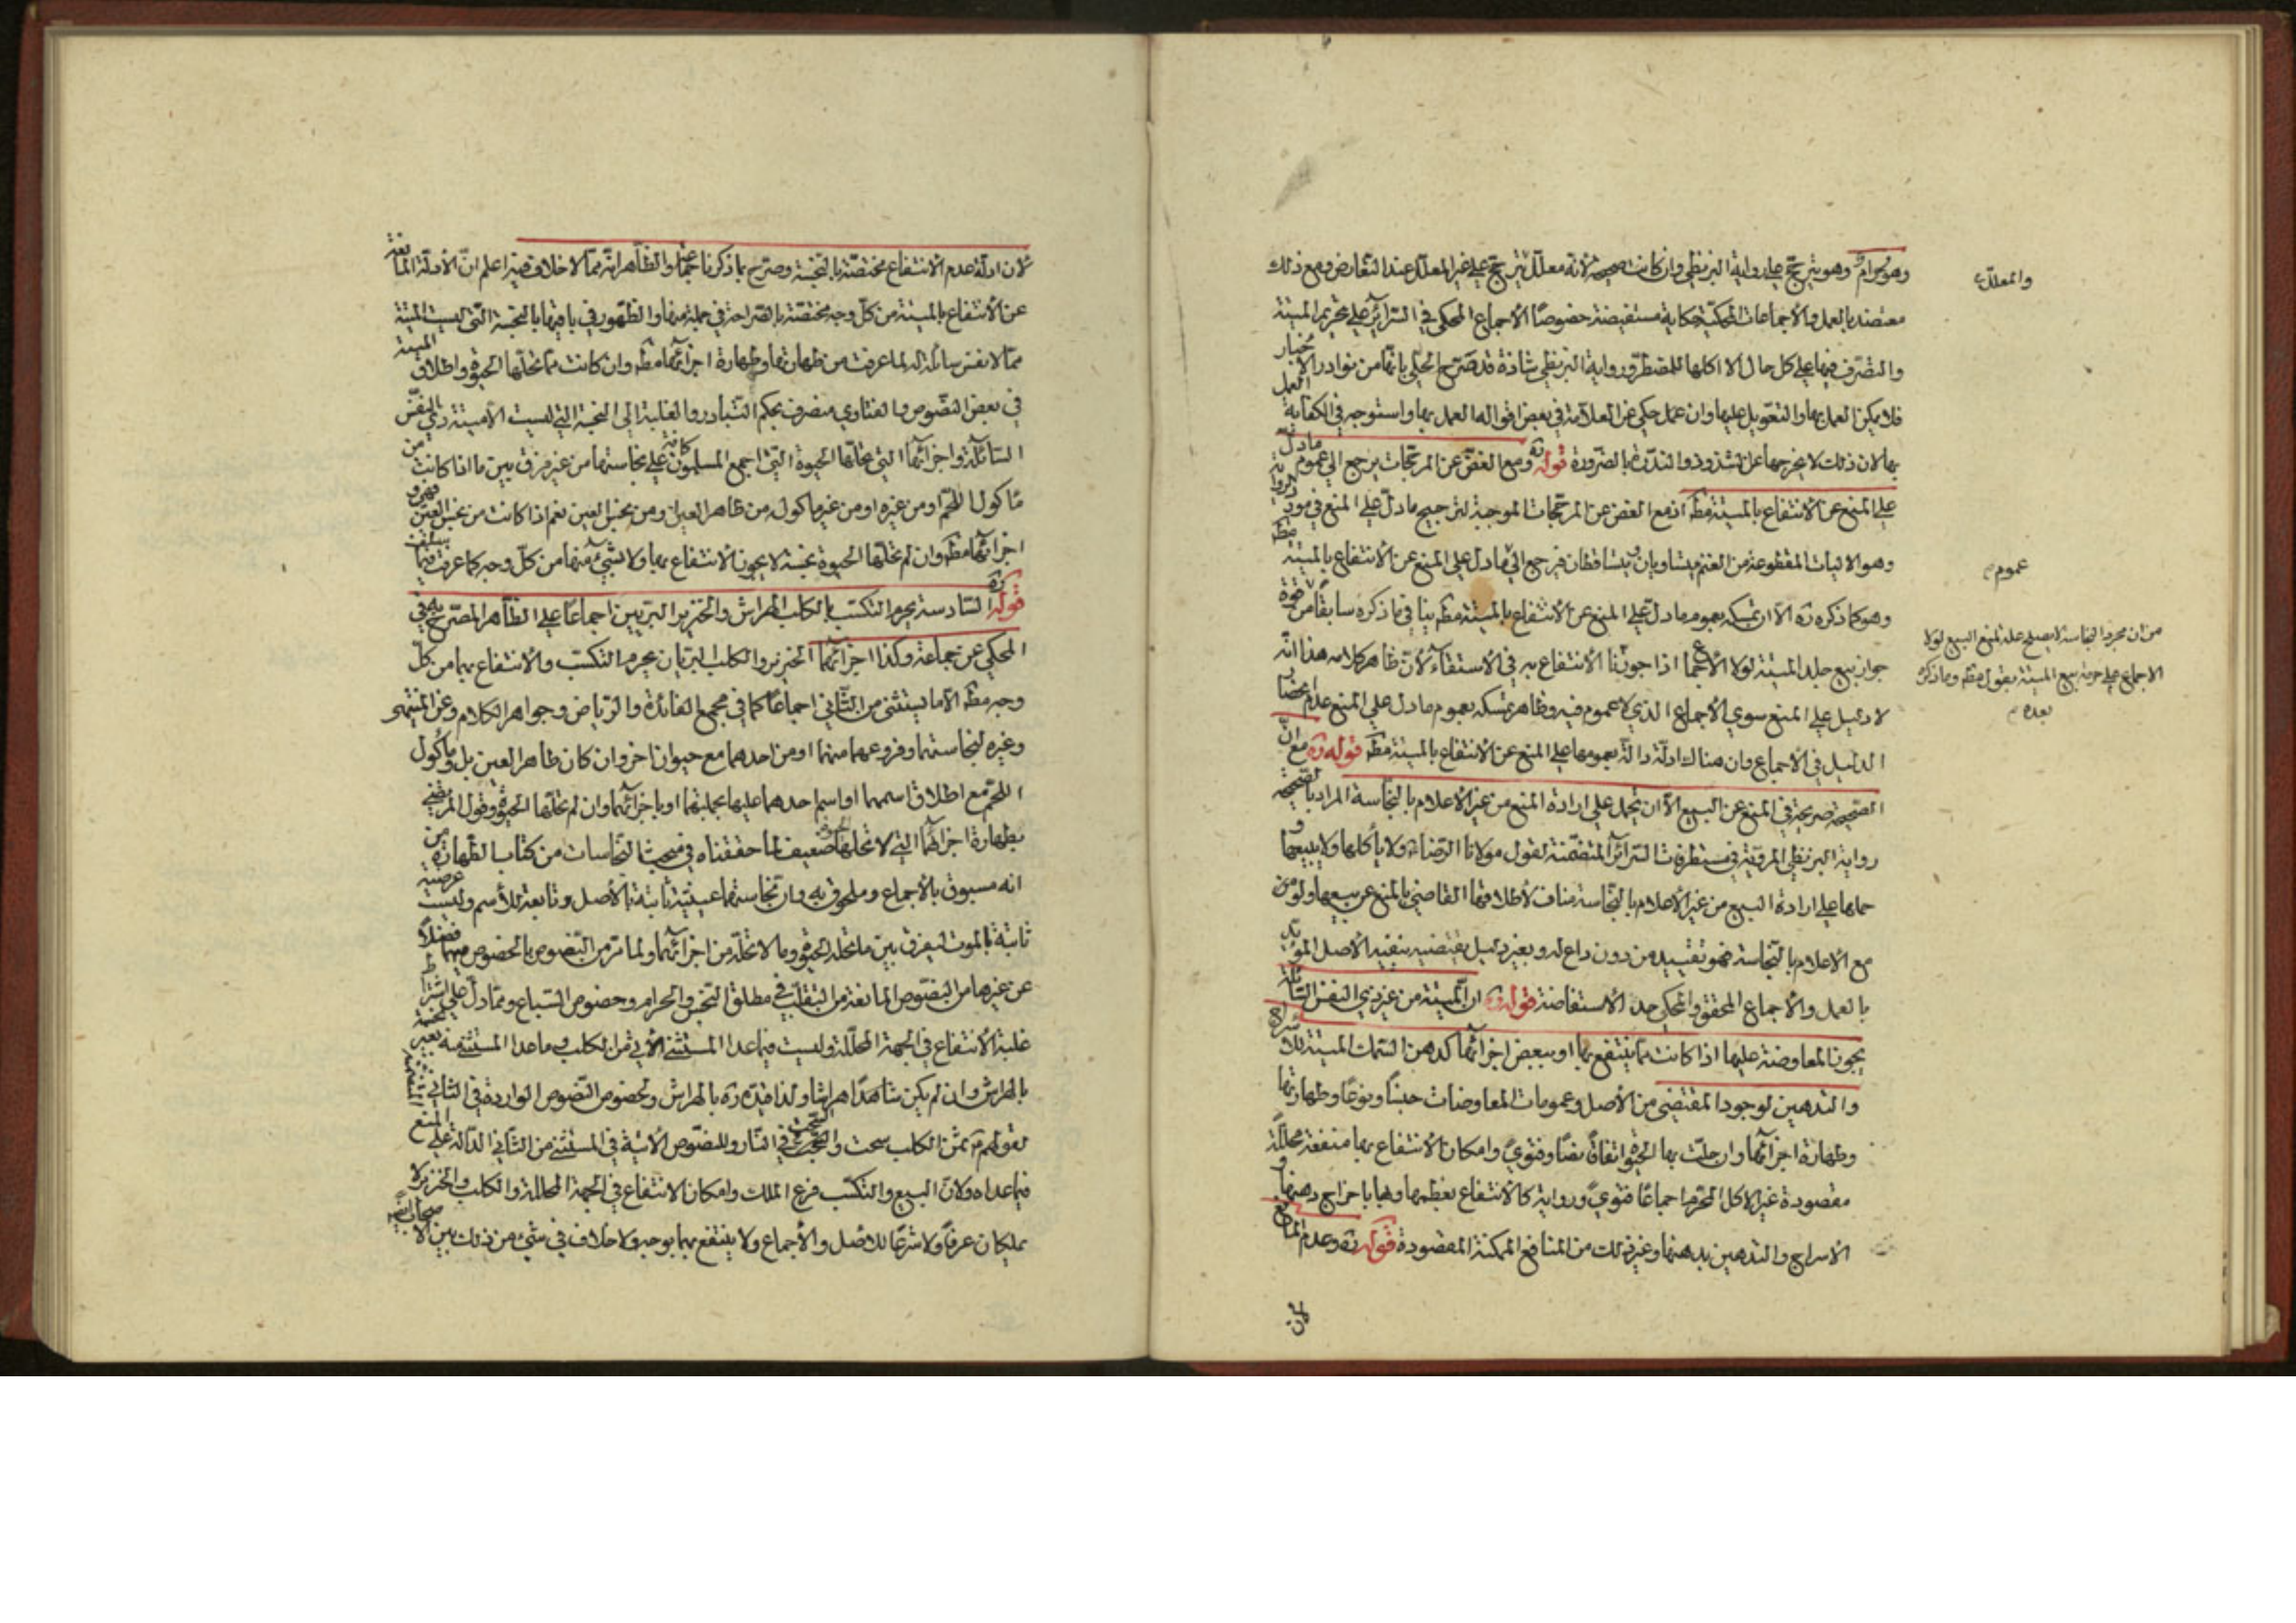 وهو حرام وهو يترجح على رواية البزنطي وان كانت صحيحة لانه معلل يترجح على غير المعلل عند التعارض ومع ذلك
والمعلل
معتضد بالعمل والأجماعات المحكية حكاية مستفيضة خصوصًا الأجماع المحكي في السرائر على تحريم الميتة
والتصرف فيها على كل حال الا اكلها للمضطر ورواية البزنطي شاذة قد صرح الحلي بانها من نوادر الاخبار
فلا يمكن العمل بها والتعويل عليها وان حكي عن العلامة في بعض اقواله العمل بها واستوجبه في الكفاية
بها لان ذلك لا يخرجها عن الشذوذ والندرة بالضرورة قوله ره ومع الغض عن المرجحات يرجع الى عموم ما دل
على المنع عن الانتفاع بالميتة مطـ اذ مع الغض عن المرجحات الموجبة لترجيح ما دل على المنع في مورد الرواية
وهو الاليات المقطوعة من الغنم يتساويان ويتساقطان فيرجع الى ما دل على المنع عن الأنتفاع بالميتة مطـ
عموم
وهو كما ذكره ره الا ان تمسكه بعموم ما دل على المنع عن الأنتفاع بالميتة مطـ ينافي ما ذكره سابقًا من قوة
جواز بيع جلد الميتة لولا الأجماع اذا جوزنا الأنتفاع به في الأستقاء لأن ظاهر كلامه هذا انه
من ان مجرد النجاسة لا يصلح علة لمنع البيع لولا
الاجماع على حرمة بيع الميتة بقول مطـ وما ذكره
بعده
لا دليل على المنع سوى الأجماع الذي لا عموم فيه وظاهر تمسكه بعموم ما دل على المنع عدم انحصار
الدليل في الأجماع وان هناك ادلة دالة بعمومها على المنع عن الأنتفاع بالميتة مطـ قوله ره مع ان
الصحيحة صريحة في المنع عن البيع الا ان تحمل على ارادة المنع من غير الاعلام بالنجاسة المراد بالصحيحة
رواية البزنطي المروية في مستطرفات السرائر المتضمنة لقول مولانا الرضا ولا يأكلها ولا يبيعها و
حملها على ارادة البيع من غير الأعلام بالنجاسة مناف لأطلاقها القاضي بالمنع عن بيعها ولو من
مع الأعلام بالنجاسة فهو تقييد من دون داع له وبغير دليل يقتضيه ينفيه الأصل المؤيد
بالعمل والأجماع المحقق والمحكي حد الأستفاضة قوله ره ان الميتة من غير ذي النفس السائلة
يجوز المعاوضة عليها اذا كانت مما ينتفع بها او ببعض اجزائها كدهن السمك الميتة للاسراج
والتدهين لوجود المقتضي من الأصل وعمومات المعاوضات جنسًا ونوعًا وطهارتها
وطهارة اجزائها وان حلت بها الحيوة اتفاقًا نصًا وفتوىً وامكان الأنتفاع بها منفعة محللة
مقصودة غير الاكل المحرم اجماعًا فتوىً ورواية كالأنتفاع بعظمها وبها باخراج دهنها و
الأسراج والتدهين بدهنها وغير ذلك من المنافع الممكنة المقصودة قوله ره وعدم المانع
لان
لان ادلة عدم الانتفاع مختصة بالنجسة وصرح بما ذكرنا جماعة والظاهر انه مما لا خلاف فيه اعلم ان الأدلة المانعة
عن الأنتفاع بالميتة من كل وجه مختصة بالصراحة في جملة منها والظهور في باقيها بالنجسة التي ليست الميتة
مما لا نفس سائلة له لما عرفت من طهارتها وطهارة اجزائها مطـ وان كانت مما تحلها الحيوة واطلاق الميتة
في بعض النصوص والفتاوي منصرف بحكم التبادر والغلبة الى النجسة التي ليست الا ميتة ذي النفس
السائلة واجزائها التي تحلها الحيوة التي اجمع المسلمون كافة على نجاستها من غير فرق بين ما اذا كانت من
مأكول اللحم او من غيره او من غير ماكول من طاهر العين ومن نجس العين نعم اذا كانت من نجس العين فهي و
اجزائها مطـ وان لم تحلها الحيوة نجسة لا يجوز الأنتفاع بها ولا بشيء منها من كل وجه كما عرفت فيما سلف
قوله ره السادسة يحرم التكسب بالكلب الهراش والخنزير البريين اجماعًا على الظاهر المصرح به في
المحكي عن جماعة وكذا اجزائهما الخنزير والكلب البريان يحرم التكسب والأنتفاع بهما من كل
وجه مطـ الا ما يستثنى من الثاني اجماعًا كما في مجمع الفائدة والرياض وجواهر الكلام وعن المنتهى
وغيره لنجاستهما وفروعهما منهما او من احدهما مع حيوان اخر وان كان طاهر العين بل ومأكول
اللحم مع اطلاق اسمهما او اسم احدهما عليها بجملتها او باجزائهما وان لم تحلها الحيوة وقول المرتضى
بطهارة اجزائهما التي لا تحلها الحيوة ضعيف لما حققناه في مبحث النجاسات من كتاب الطهارة من
انه مسبوق بالأجماع وملحوق به وان نجاستهما عينية ثابتة بالأصل وتابعة للأسم وليست عرضية
ثابتة بالموت ليفرق بين ما تحله الحيوة وما لا تحله من اجزائهما ولما مر من النصوص بالخصوص فيهما فضلًا
عن غيرها من النصوص المانعة من التقلب في مطلق النجس والحرام وخصوص السباع ومما دل على اشتراط
غلبة الأنتفاع في الجهة المحللة وليست فيما عدا المستثنى الأتي من الكلب وما عدا المستثنى منه
بالهراش وان لم يكن شاهدًا هراشًا ولذا قيده ره بالهراش ولخصوص النصوص الواردة في الثاني
لقولهم ثمن الكلب سحت والسحت في النار وللنصوص الأتية في المستثنى من الثاني الدالة على المنع
فيما عداه ولان البيع والتكسب فرع الملك وامكان الانتفاع في الجهة المحللة والكلب والخنزير لا
يملكان عرفًا ولا شرعًا للاصل والأجماع ولا ينتفع بهما بوجه ولا خلاف في شيء من ذلك بين الاصحاب